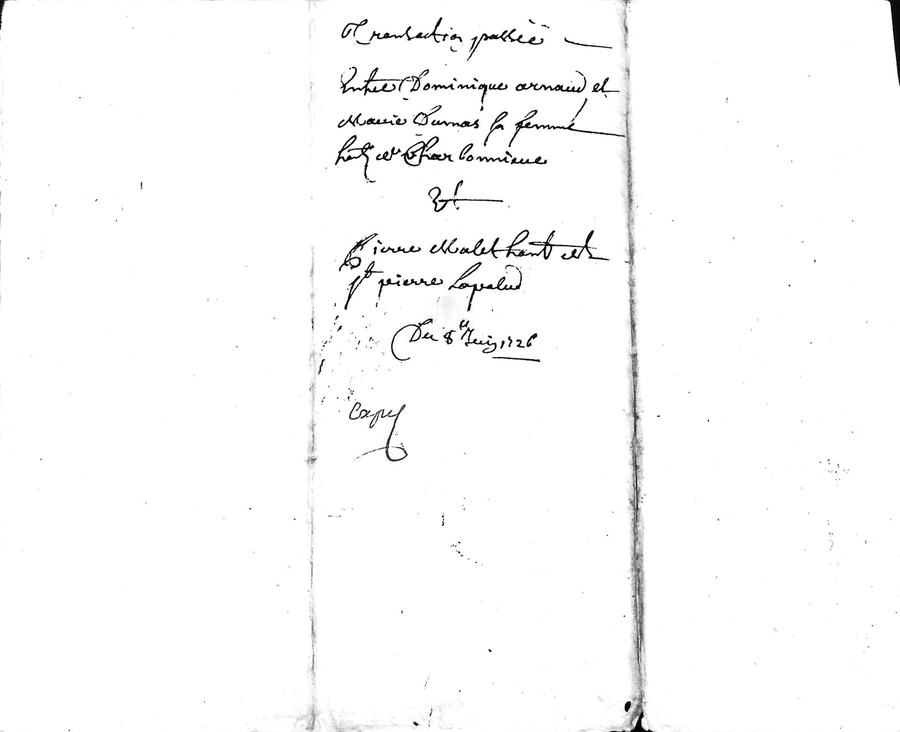 Transaction passée
Entre Dominique arnaud et
Marie Dumas sa femme
hats de Charbonniere
Et
Pierre Malet hant de
st pierre Lapalud
Du 8e Juin 1726
Copie